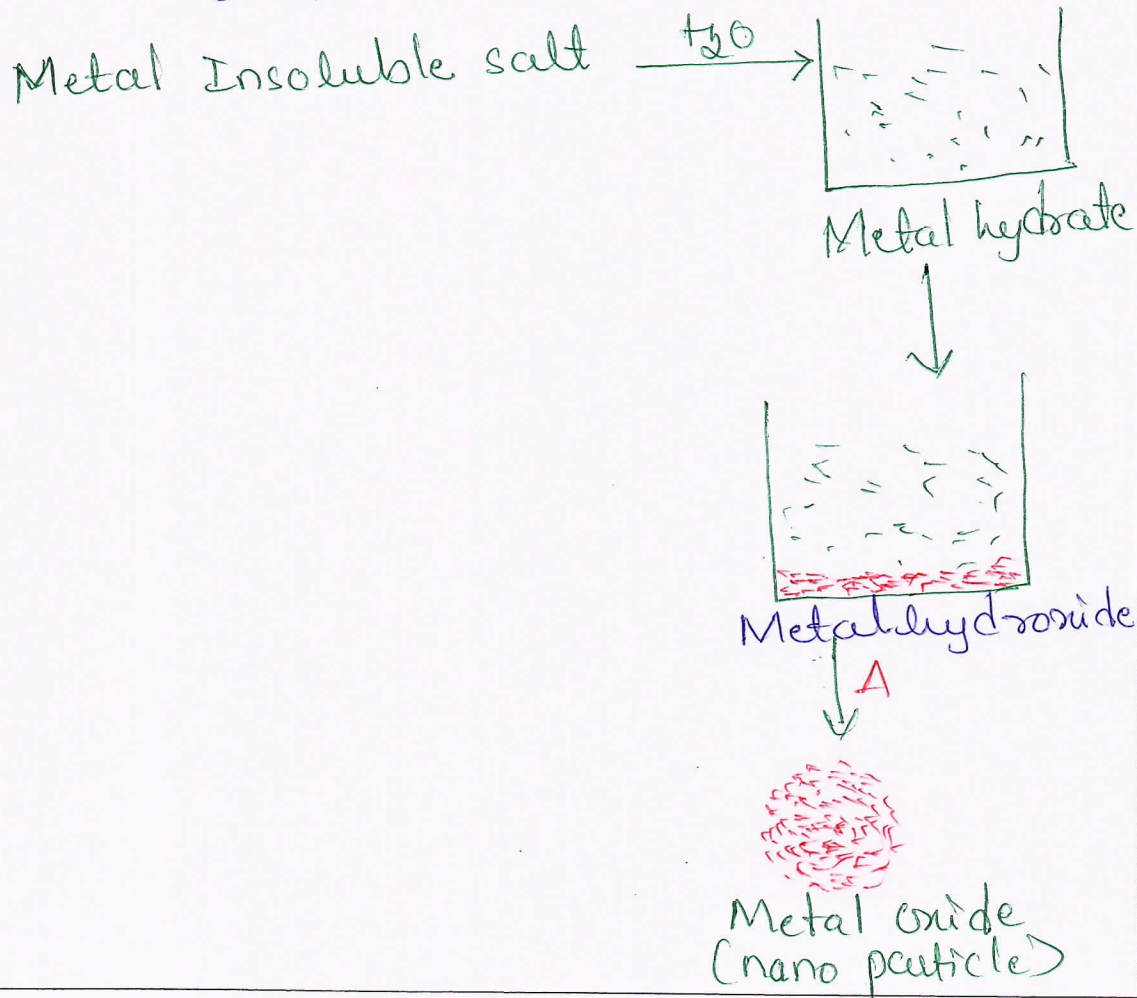 Metal Insoluble salt
H2O
Metal hydrate
Metal hydroxide
Δ
Metal oxide
(nano particle)